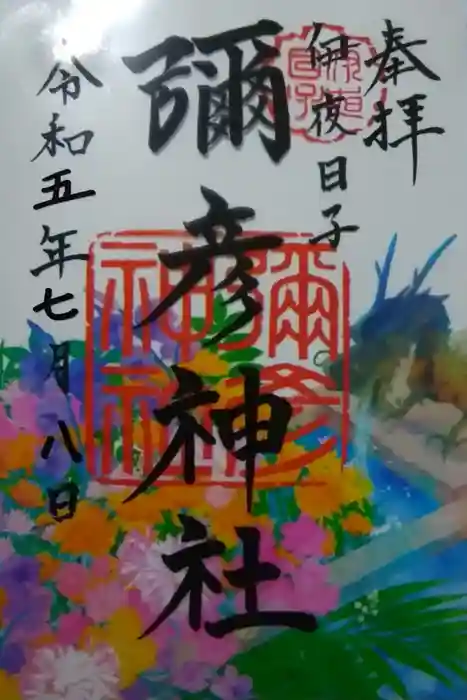 奉拝
伊夜日子
彌彦神社
令和五年七月八日
彌彦神社